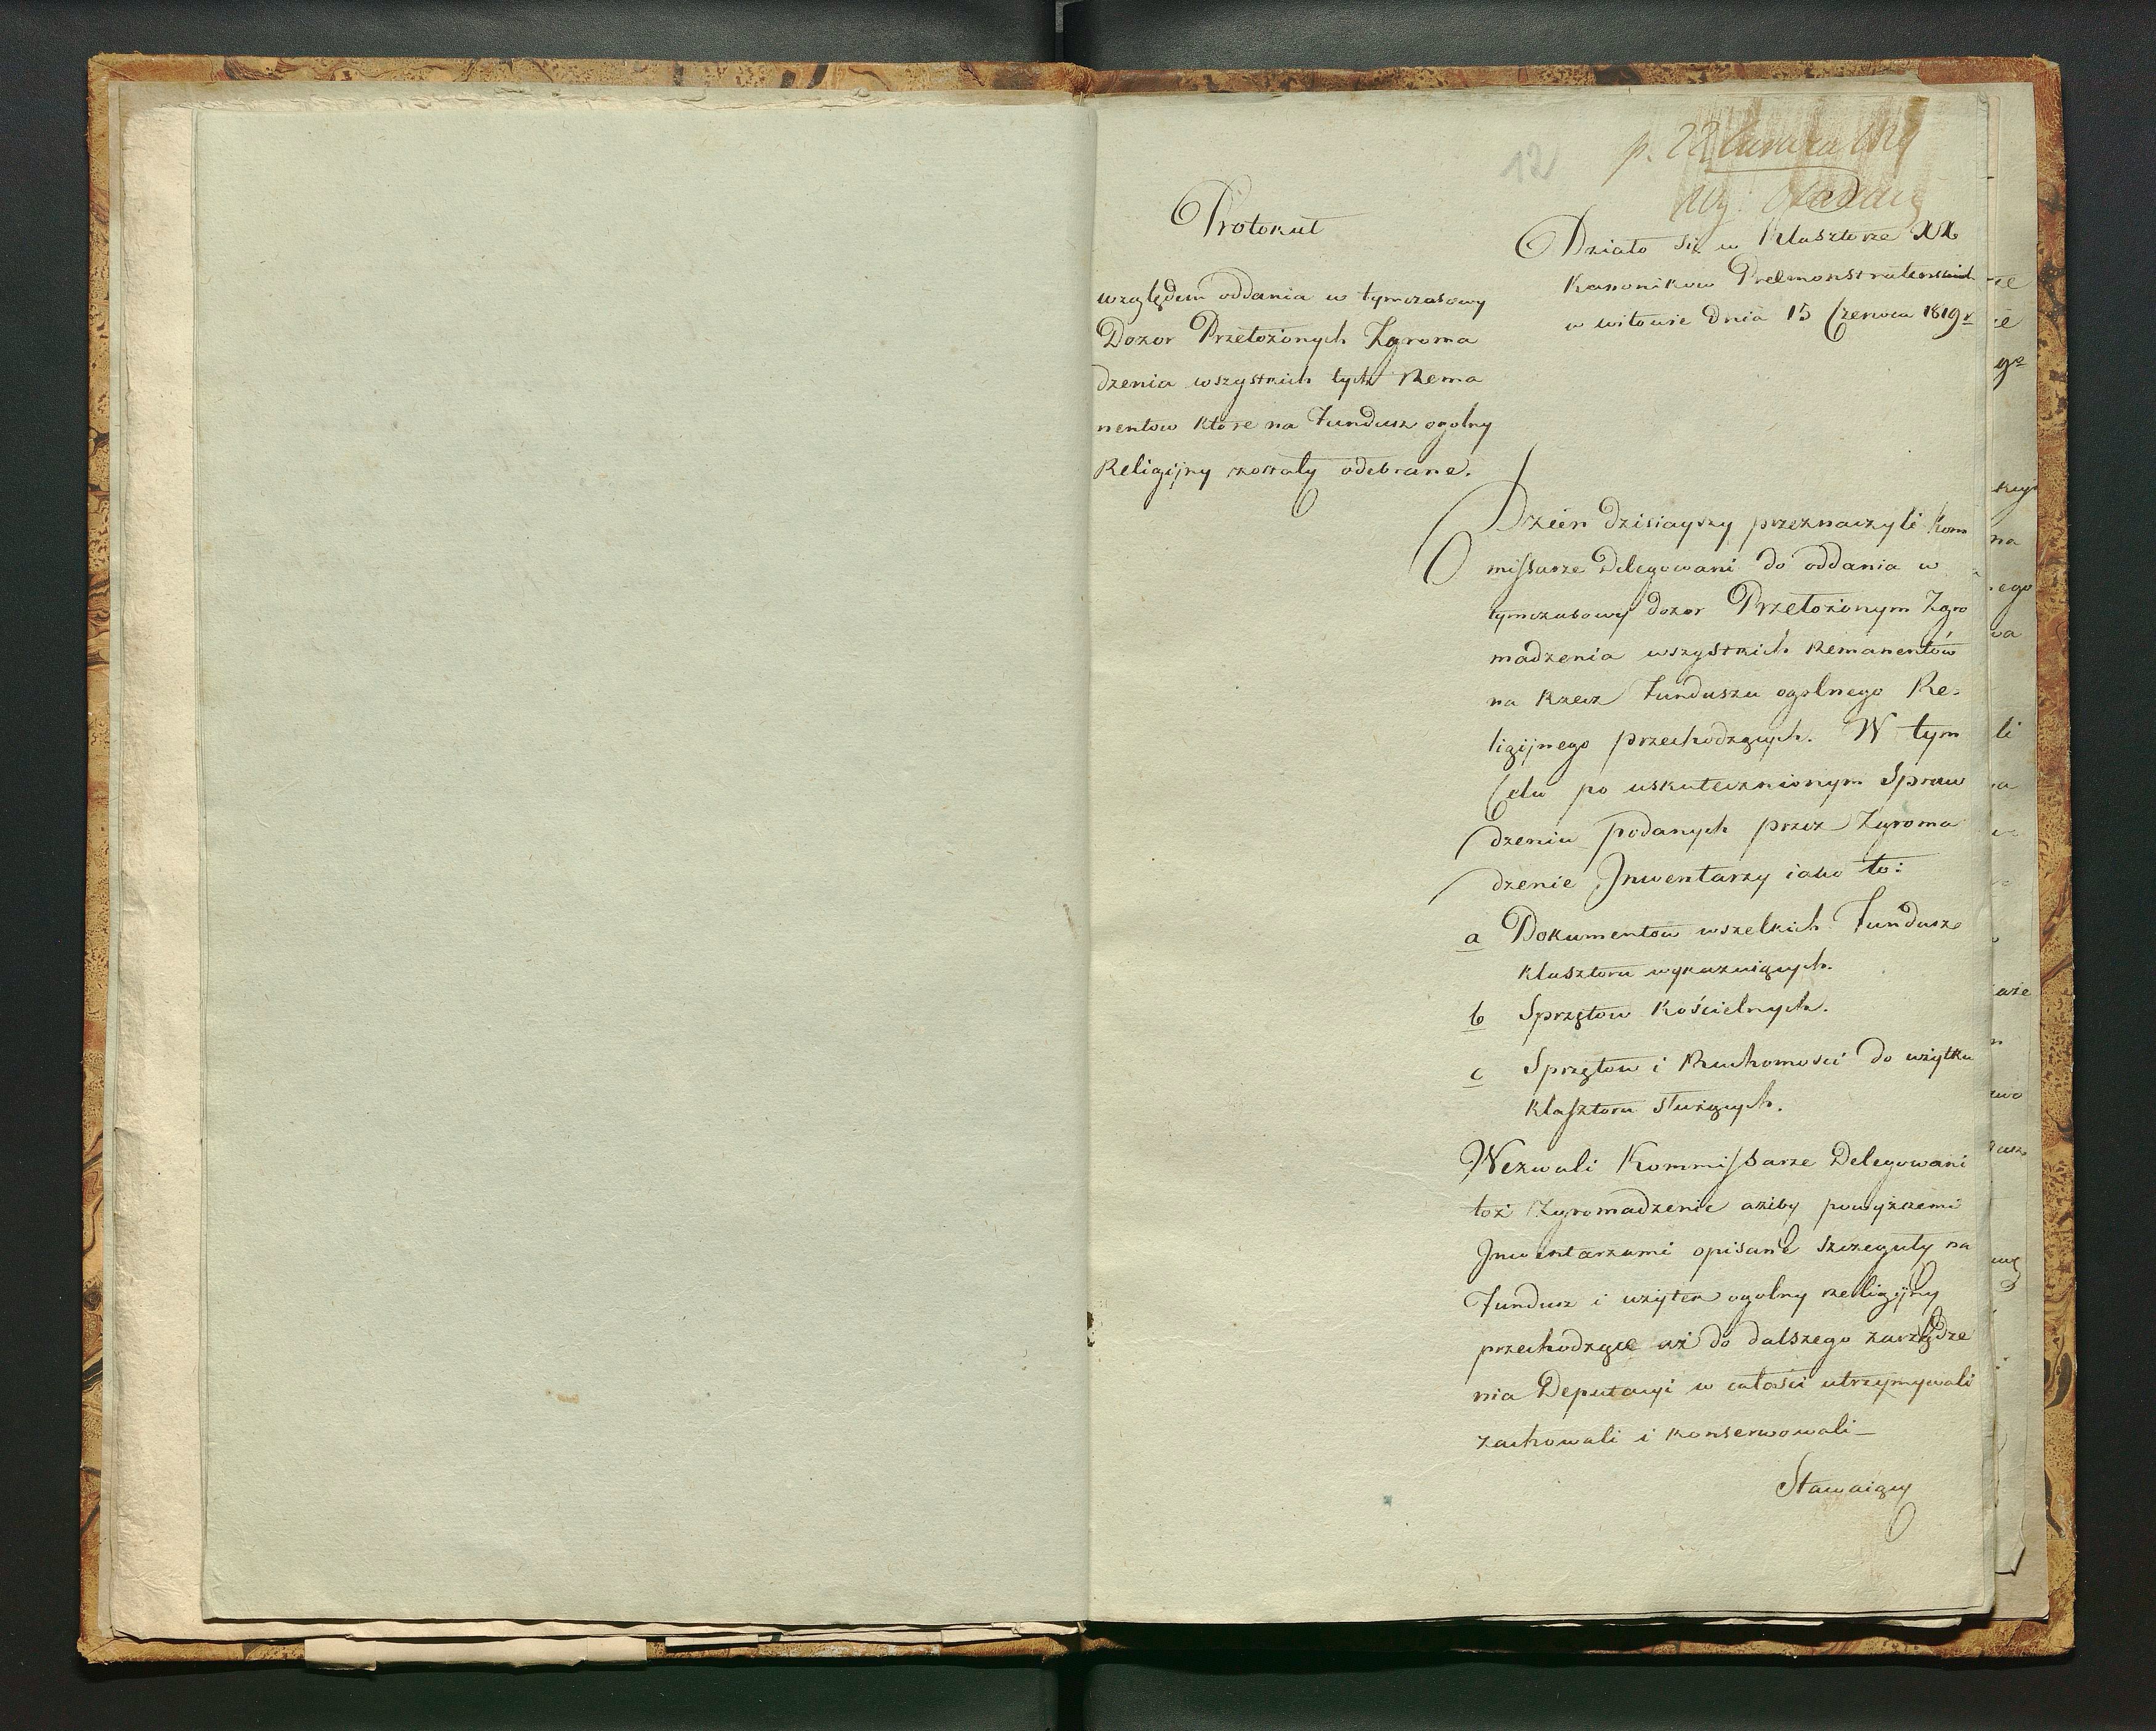 12
p. 22
Protokuł
względem oddania w tymczasowy
Dozor Przełożonych Zgroma
dzenia wszystkich tych Rema
nentow które na Fundusz ogolny
Religijny zostały odebrane.
Działo się w Klasztorze XX
Kanonikow Premonstratenskich
w witowie Dnia 15 Czerwca 1819 r
Dzień dzisiayszy przeznaczyli Kom
missarze Delegowani do oddania w
tymczasowy dozor Przełożonym Zgro
madzenia wszystkich Remanentów
na Rzecz Funduszu ogolnego Re-
ligijnego przechodzących. W tym
Celu po uskutecznionym Spraw
dzeniu podanych przez Zgroma
dzenie Inwentarzy iako to:
a Dokumentow wszelkich Fundusze
klasztoru wykazuiących.
b Sprzętow Kościelnych.
c Sprzętow i Ruchomości do użytku
klasztoru służących.
Wezwali Kommissarze Delegowani
toż Zgromadzenie ażeby powyższemi
Inwentarzami opisane szczeguły na
Fundusz i użytek ogolny religijny
przechodzące aż do dalszego zarządze
nia Deputacyi w całości utrzymywali
zachowali i konserwowali –
Stawaiący